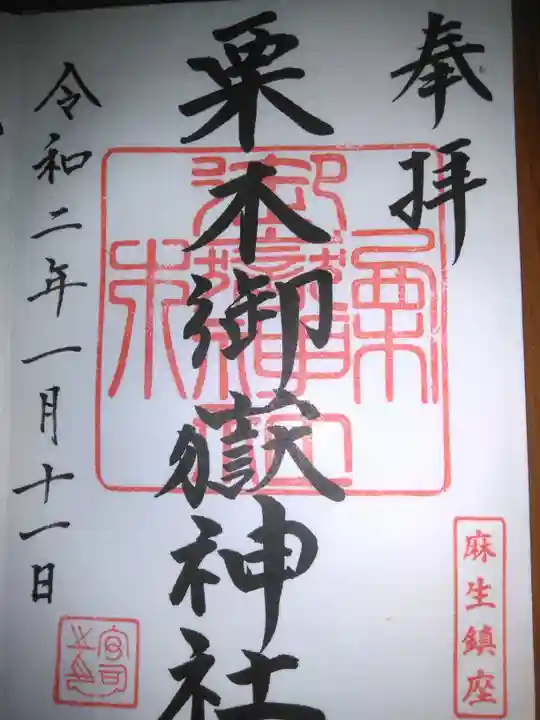 奉拝
麻生鎮座
栗木御嶽神社
令和二年一月十一日